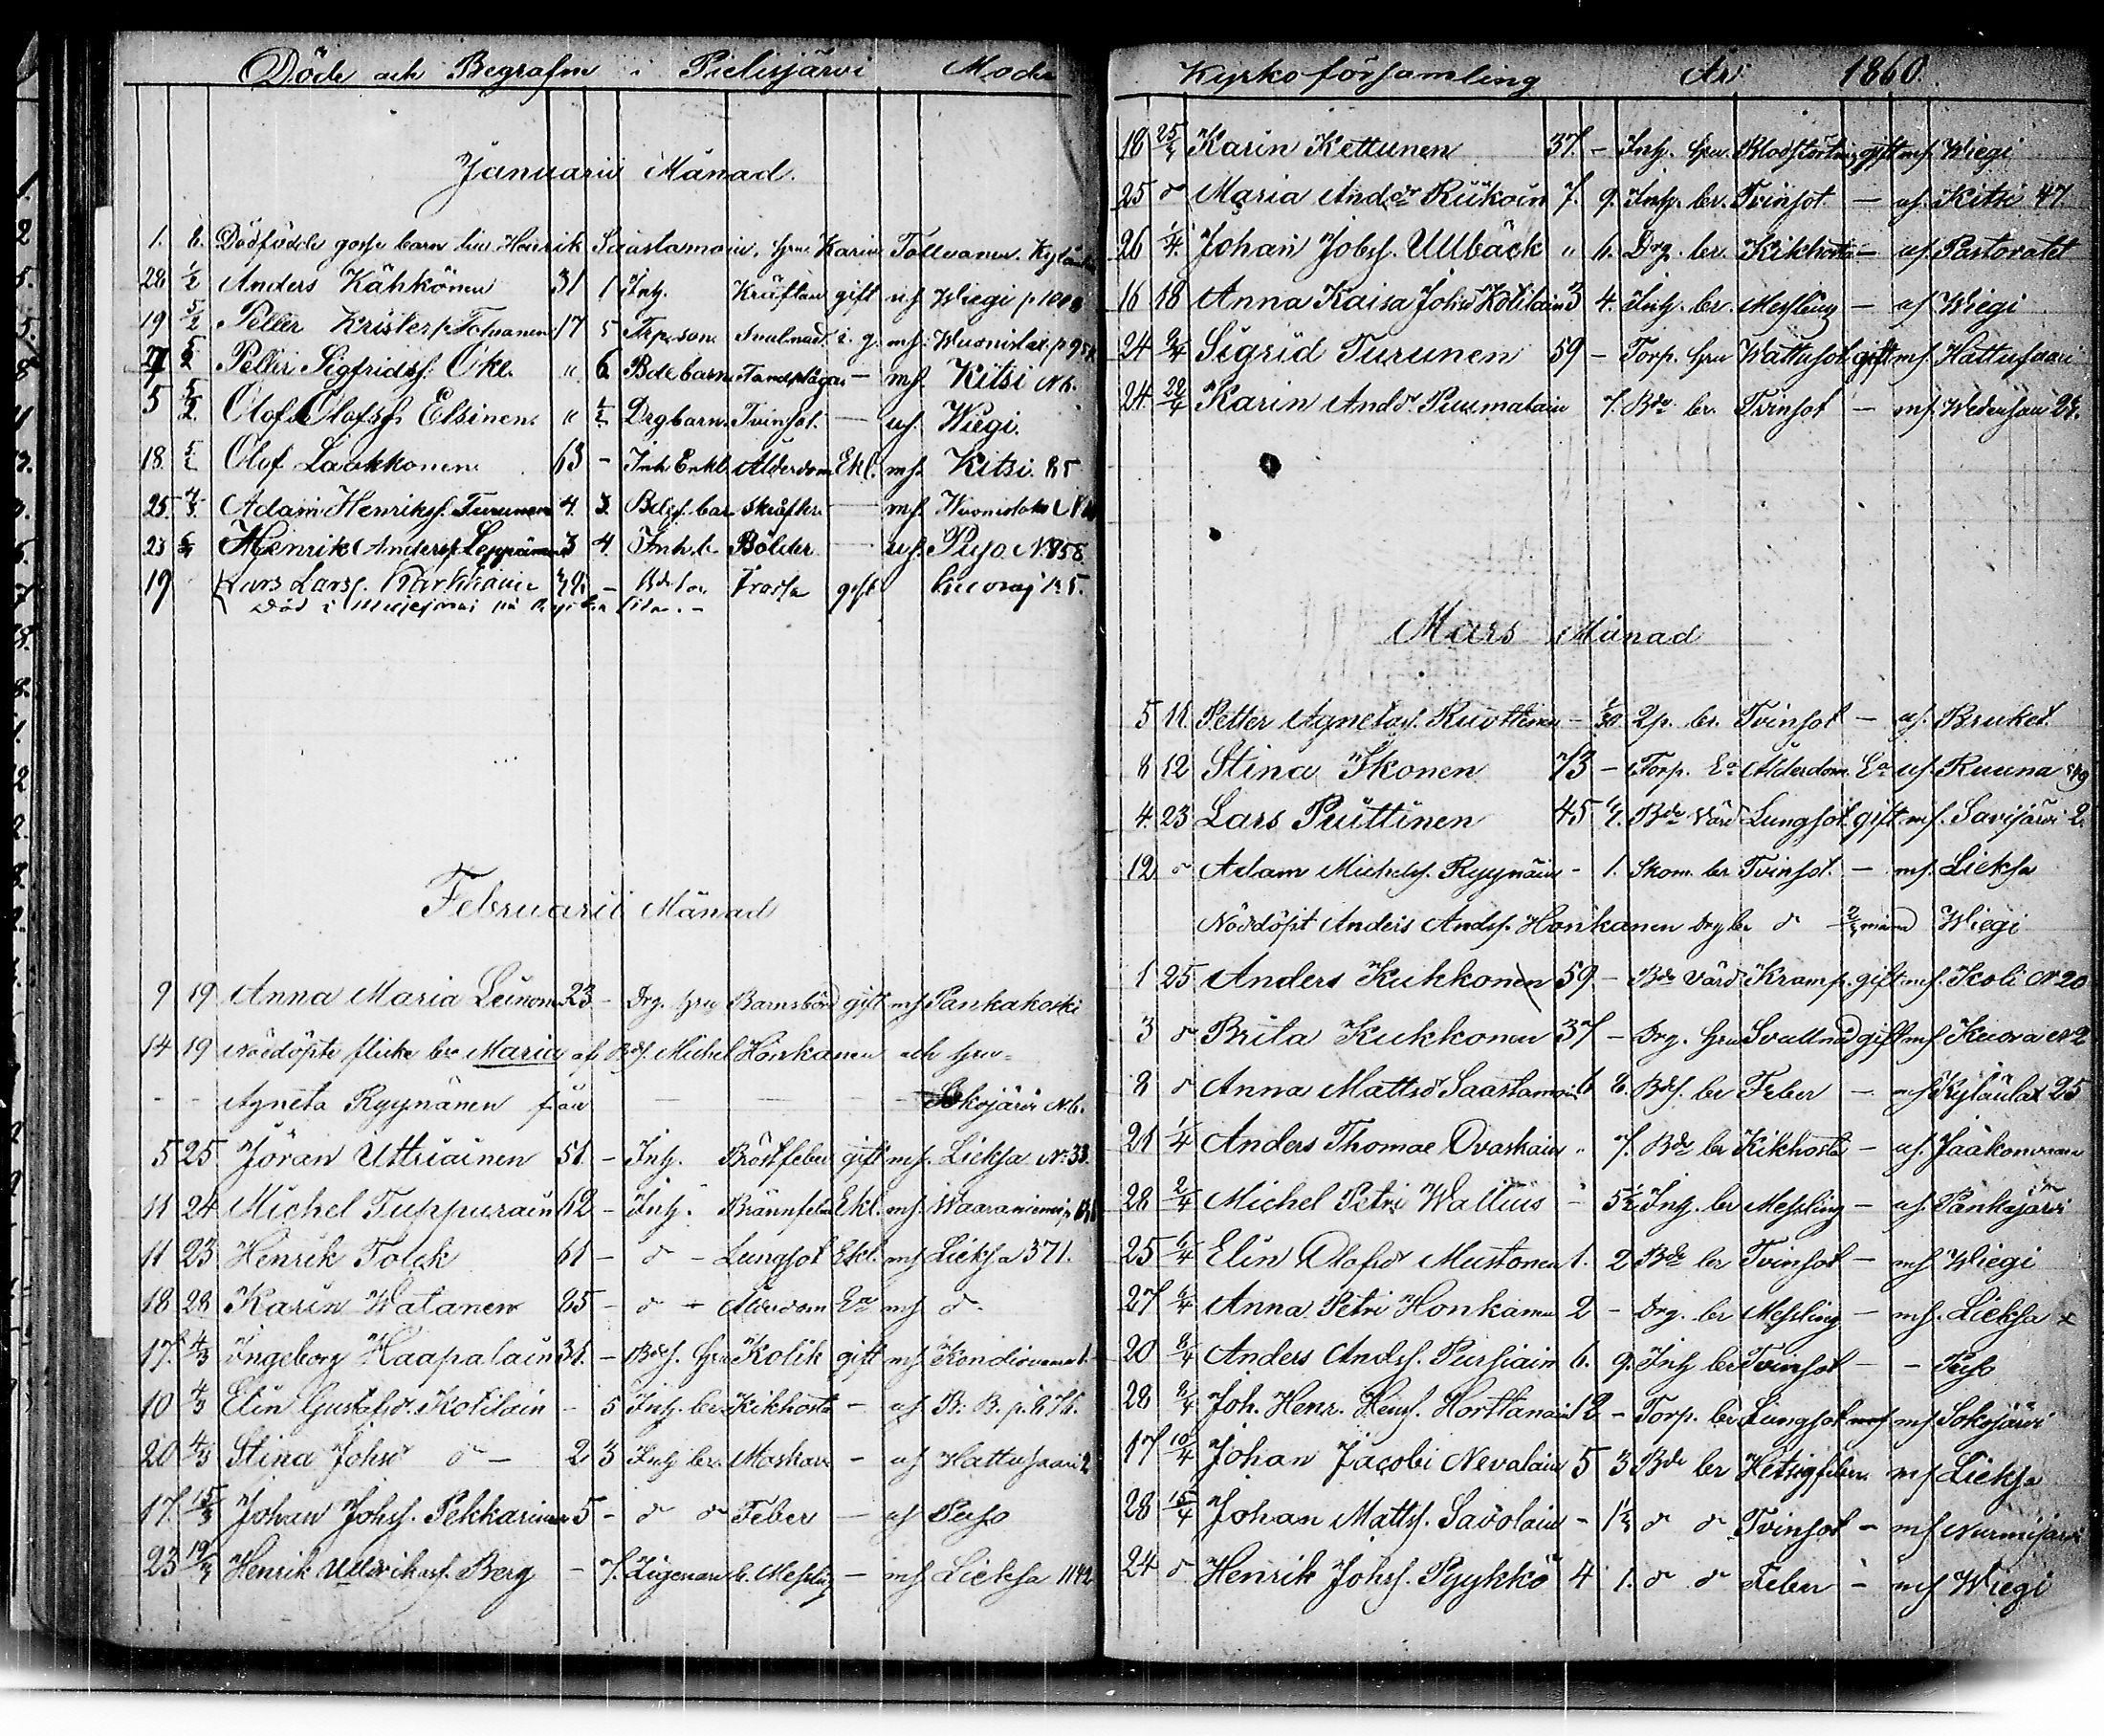 Döde och Begrafne i Pielisjärvi Moder
Januarii Månad.
1. 8. Dödfödde gosse barn Henrik Saastamoin, hru Karin Tolvanen
28 1/2 Anders Kähkönen 31 1 Inh. Kräftan gift uf Wiegi
19 5/2 Petter Krister Tolvanen 17 5 Trp. son i. g. mf. p 95
27 5/2 Petter Sigfridsf. Oke " 6 Bde barn Tandplåga — mf. Kitsi
5 5/2 Olof Olofsf. Elsinen " 1/2 Drg barn Tvinsot. — uf. Wiegi.
18 Olof Laakkonen 63 — Inh Enkl Ålderdom Ekl. mf. Kitsi. 85
25. 4/3 Adam Henriksf. Turunen 4. 3. Bdsf. bar — mf.
23 Henrik Andersf. Leppänen 3 4. Inh. b Bölder — uf. Puso N. 858.
19 Lars Larsf. Karhkain — gift
Död i
Februarii Månad
9 19 Anna Maria Leinonen 23 — Drg. hru Barnsbörd gift mf Pankakoski
14 19 Nöddöpte flicke br. Maria af Bdsf. Michel Honkanen och hru
— — Agneta Ryynänen från — — — Sokojärvi N. 6.
5 25. Jöran Uttriainen 51. — Inh. Bröstfeber gift mf. Lieksa No 33.
11 24 Michel Tuppurain 62 — Inh. Brännfeber Ekl. mf. Waaraniemi
11 23 Henrik Tolek 61 — d — Lungsot Ekl. mf Lieksa 371.
18 28 Karin Watanen 85 — d — Ålderdom Ea mf d.
17. 4/3 Ingeborg Haapalain 31. — Bdsf. hru Kolik gift mf.
10 4/3 Elin Gustafsdr. Kotilain — 5 Inh. br. Kikhosta — uf B. B. p. 876.
20 4/3 Stina Johsdr d — 2 3 Inh br. Maskar — uf Hattusaari 2
17. 15/3 Johan Johsf. Pekkarinen 5 — d d Feber — uf Puso
23 19/3 Henrik Ullrikasf. Berg — 7. Zigenare b. Messling — mf Lieksa 1142
Kyrkoförsamling År 1860.
18 25/3 Karin Kettunen 37. — Inh. hru Blodstörtning gift mf. Wiegi
25 d Maria Andsdr Kiikoin 7. 9. Inh. br. Tvinsot — uf. Kitsi 47
26 1/4. Johan Jobsf. Ullbäck " 6. Drg. br. Kikhosta — uf. Pastoratet
16 18 Anna Kaisa Johsdr Kotilain 3 4. Inh. br. Messling — uf Wiegi
24 9/4 Sigrid Turunen 59 — Torp. hru Wattusot gift mf. Hattusaari
24. 22/4 Karin Andsdr. Puumalain 7. Bde br. Tvinsot — mf.
Mars Månad
5 11. Petter Agnetasf. Ruottinen — 1/30 2p. br. Tvinsot — uf. Bruket.
8 12 Stina Ikonen 73 — Torp. Ea Ålderdom Ea uf. Ruuna
4. 23 Lars Piittinen 45 Bde värd Lungsot gift mf. Savijärvi 2.
12 d Adam Michelsf. Ryynäin — 1. Skom. br Tvinsot. — mf. Lieksa
Nöddöpt Anders Andsf. Honkanen Drg br d Wiegi
1 25 Anders Kukkonen 59 — Bde värd Kramp. gift mf. Koli No 20
3 d Brita Kukkonen 37 — Drg. hru gift mf Kuora No 2
8 d Anna Mattsdr Saastamoin 6. 8. Bdsf. br Feber — mf Kylänlax 25
21 1/4 Anders Thomae Ovaskain " 7. Bde br Kikhosta — uf.
28 2/4 Michel Petri Wallius " 5 1/2 Inh. br Messling — uf. Pankajärvi
25 6/4 Elin Olofsdr Mustonen 1. 2 Bde br Tvinsot — mf Wiegi
27 6/4 Anna Petri Honkanen 2 — Drg. br Messling — mf. Lieksa x
20 8/4 Anders Andsf. Pursiain 6. 9. Inh br Tvinsot — — Puso
28 8/4 Joh. Henr. Henrsf. Horttanain 12 — Torp. br Lungsot mf mf Sokojärvi
17 10/4 Johan Jacobi Nevalain 5 3 Bde br Hetsigfeber. mf Lieksa
28 15/4 Johan Mattsf. Savolain — 1 1/2 d d Tvinsot — mf Nurmijärvi
24 d Henrik Johsf. Pyykkö 4 1. d d Feber — mf Wiegi